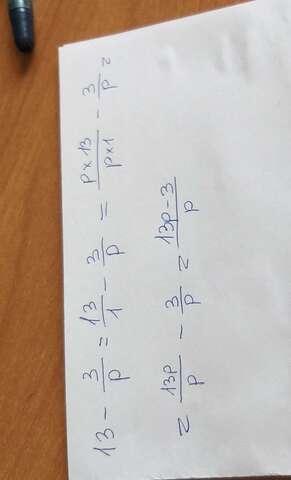 13 - 3/p = 13/1 - 3/p = p×13/p×1 - 3/p =
= 13p/p - 3/p = 13p-3/p